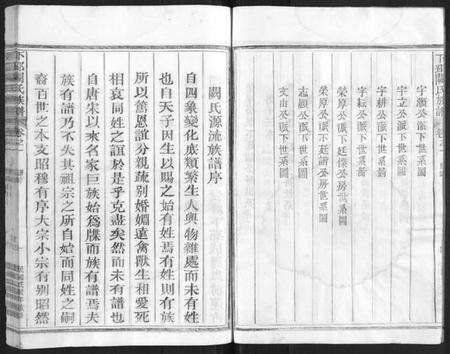 下邳闕氏族譜 卷之一
宇瀕公派下世系圖
宇立公派下世系圖
宇耕公派下世系圖
宇耘公派下世系圖
榮岸公派下廷懷公房世系圖
榮岸公派下廷諧公房世系圖
志明公派下世系圖
文山公派下世系圖
闕氏源流族譜序
自四象變化庶類繁生人與物雜處而未有姓
也自天子因生以賜之始有姓焉有姓則有族
所以篤恩誼分親疏別婚媾遠禽獸生相愛死
相哀同姓之誼於是乎克盡矣然而未有譜也
自唐宋以來名家巨族始爲牒而族有譜焉夫
族有譜乃不失其祖宗之所自始而同姓之嗣
裔百世之本支昭穆有序大宗小宗有別昭然
下邳闕氏族譜 卷之一